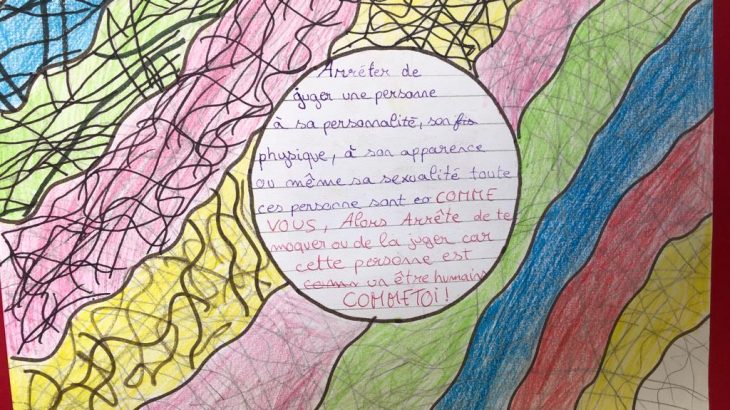 Arrêter de
juger une personne
à sa personnalité, son
physique, à son apparence
ou même sa sexualité toute
ces personne sont COMME
VOUS, Alors Arrête de te
moquer ou de la juger car
cette personne est
un être humain
COMME TOI !